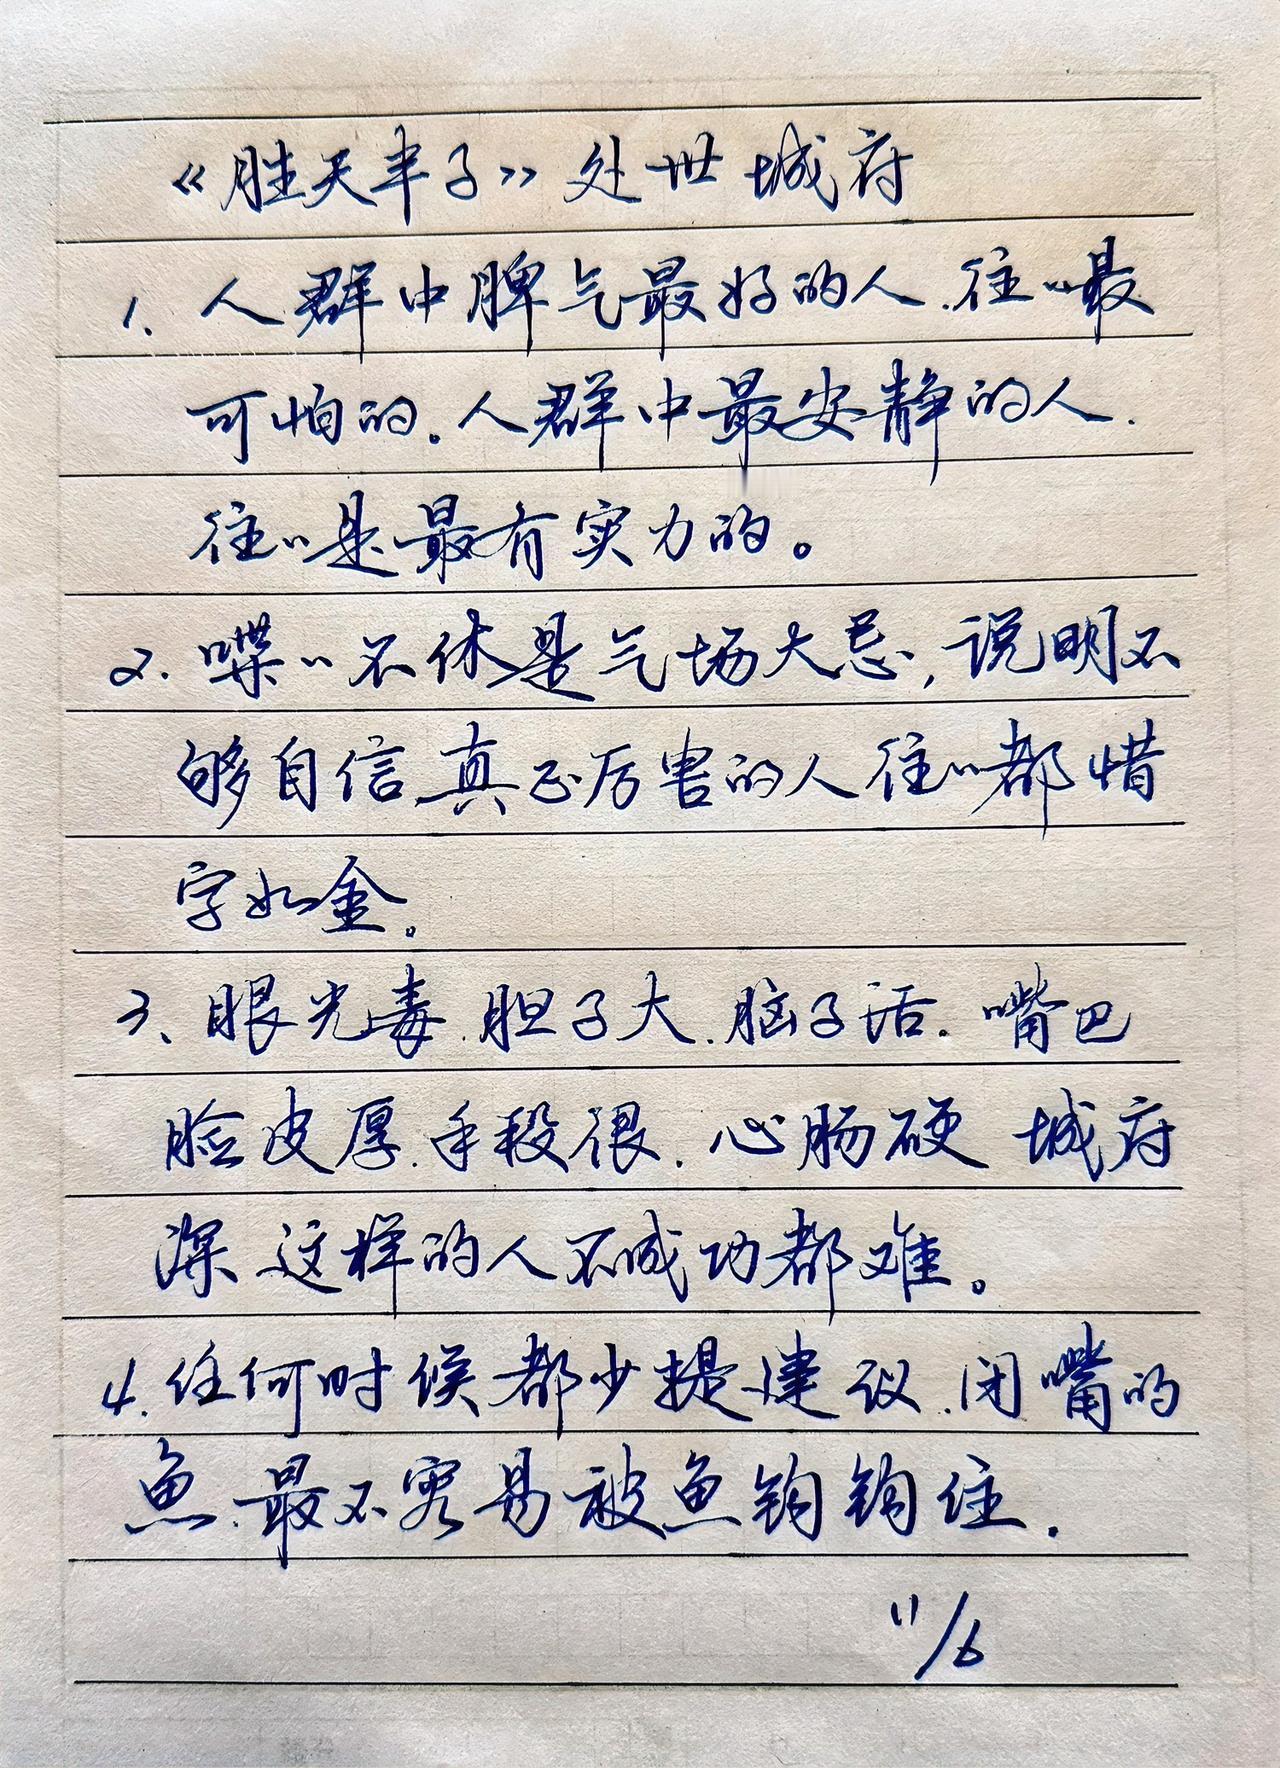 《胜天半子》处世城府
1、人群中脾气最好的人.往〃最
可怕的。人群中最安静的人.
往〃是最有实力的。
2.喋〃不休是气场大忌,说明不
够自信.真正厉害的人往〃都惜
字如金。
3、眼光毒.胆子大.脑子活.嘴巴
脸皮厚.手段很.心肠硬 城府
深.这样的人不成功都难。
4.任何时候都少提建议.闭嘴的
鱼.最不容易被鱼钩钩住.
11/6